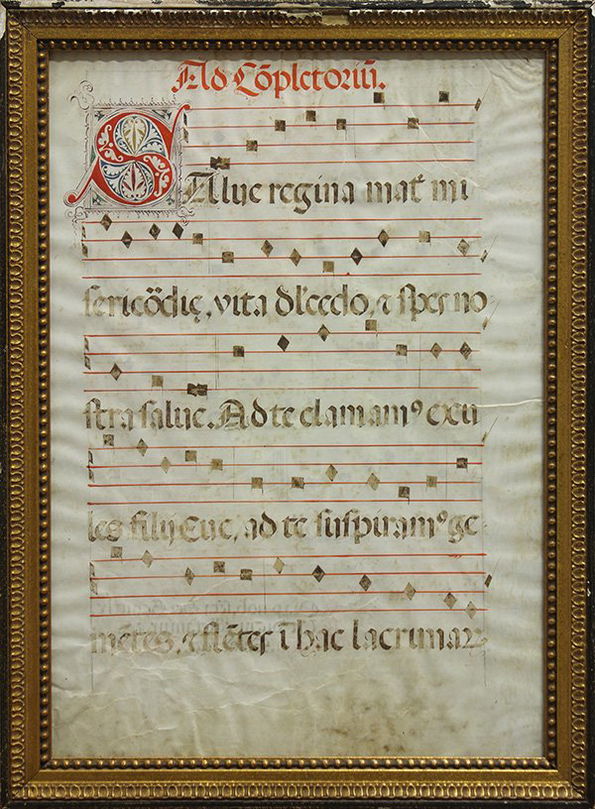 Ad Cōpletoriū.
SAlue regina mat̄ mi
sericordię, vita dl'cedo, ⁊ spes no
stra salue. Ad te clamamꝰ exu
les filij Eue, ad te suspiramꝰ ge
mētes, ⁊ flētes ī hac lacrimar